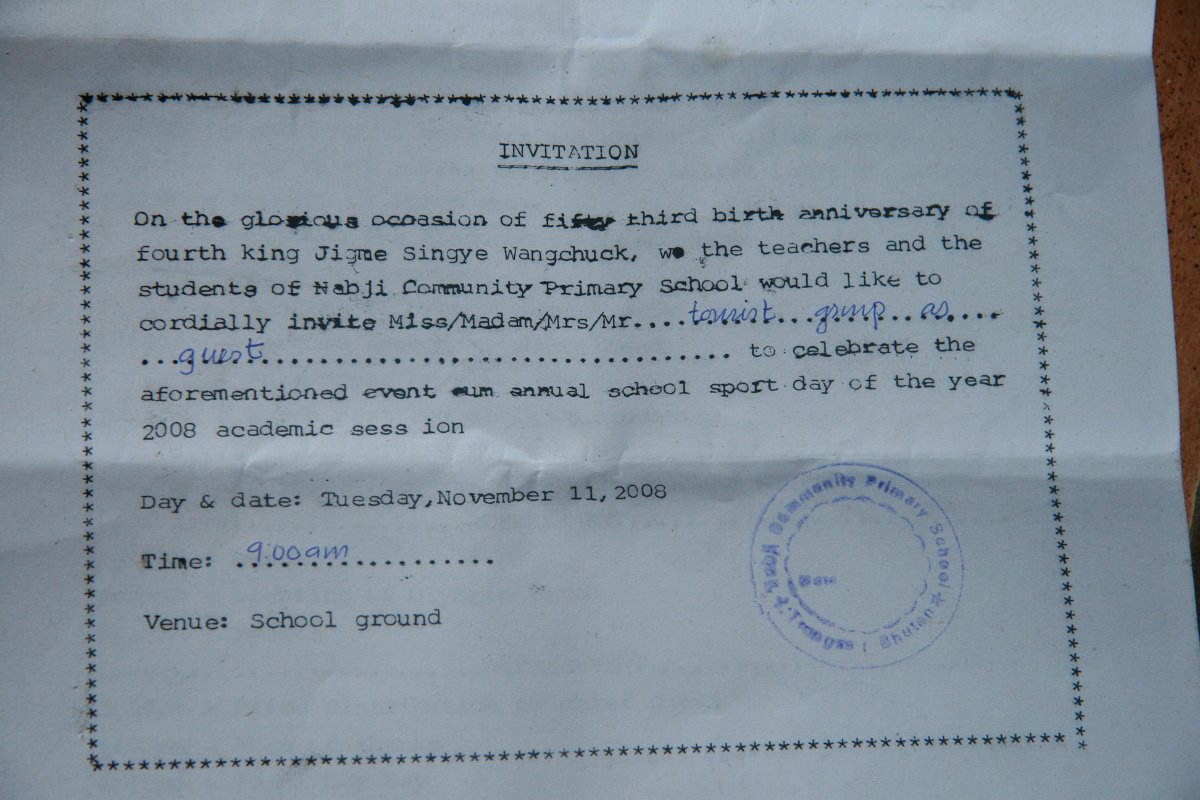 INVITATION
On the glorious occasion of fifty third birth anniversary of
fourth king Jigme Singye Wangchuck, we the teachers and the
students of Nabji Community Primary School would like to
cordially invite Miss/Madam/Mrs/Mr....tourist...group..as....
...guest................................ to celebrate the
aforementioned event cum annual school sport day of the year
2008 academic sess ion
Day & date: Tuesday,November 11,2008
Time: 9:00am..................
Venue: School ground
Nabji Community Primary School
Date
Trongsa : Bhutan